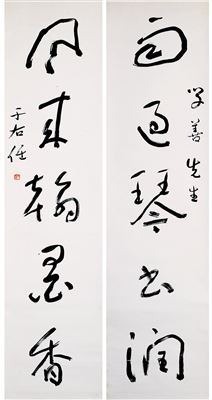 雨過琴書潤
學善先生
風來翰墨香
于右任